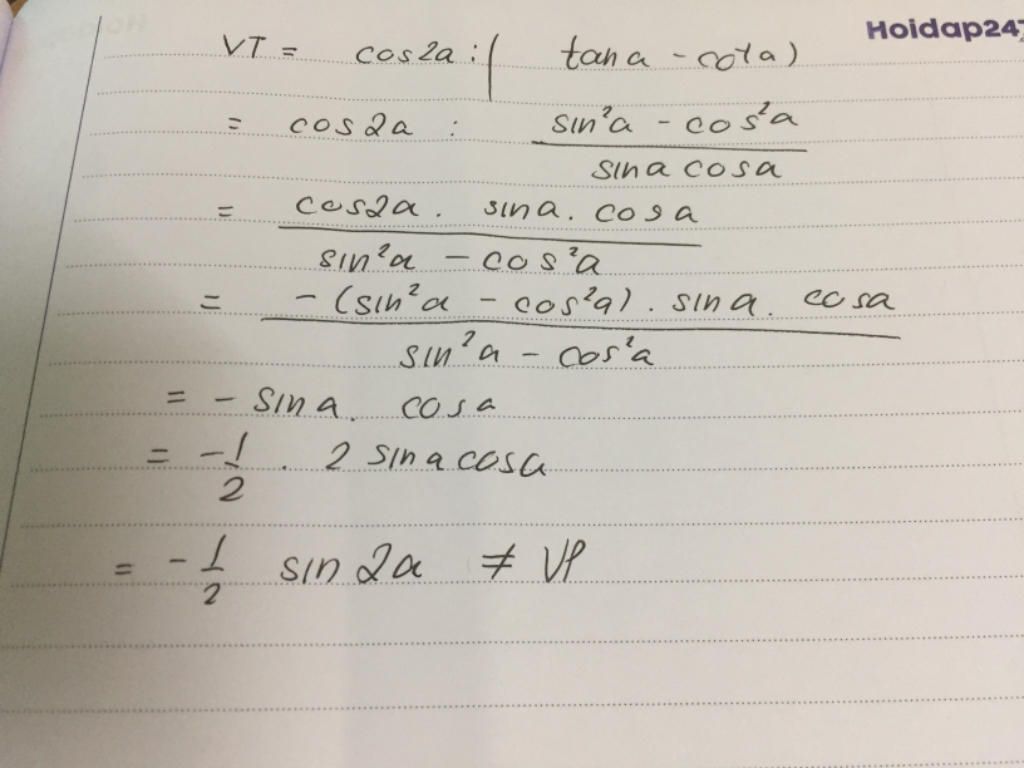 Hoidap247
VT = cos2a : ( tan a - cot a )
= cos2a : \frac{sin²a - cos²a}{sin a cos a}
= \frac{cos2a . sin a . cos a}{sin²a - cos²a}
= \frac{- (sin²a - cos²a) . sin a . cos a}{sin²a - cos²a}
= - sin a . cos a
= -\frac{1}{2} . 2 sin a cos a
= -\frac{1}{2} sin 2a ≠ VP